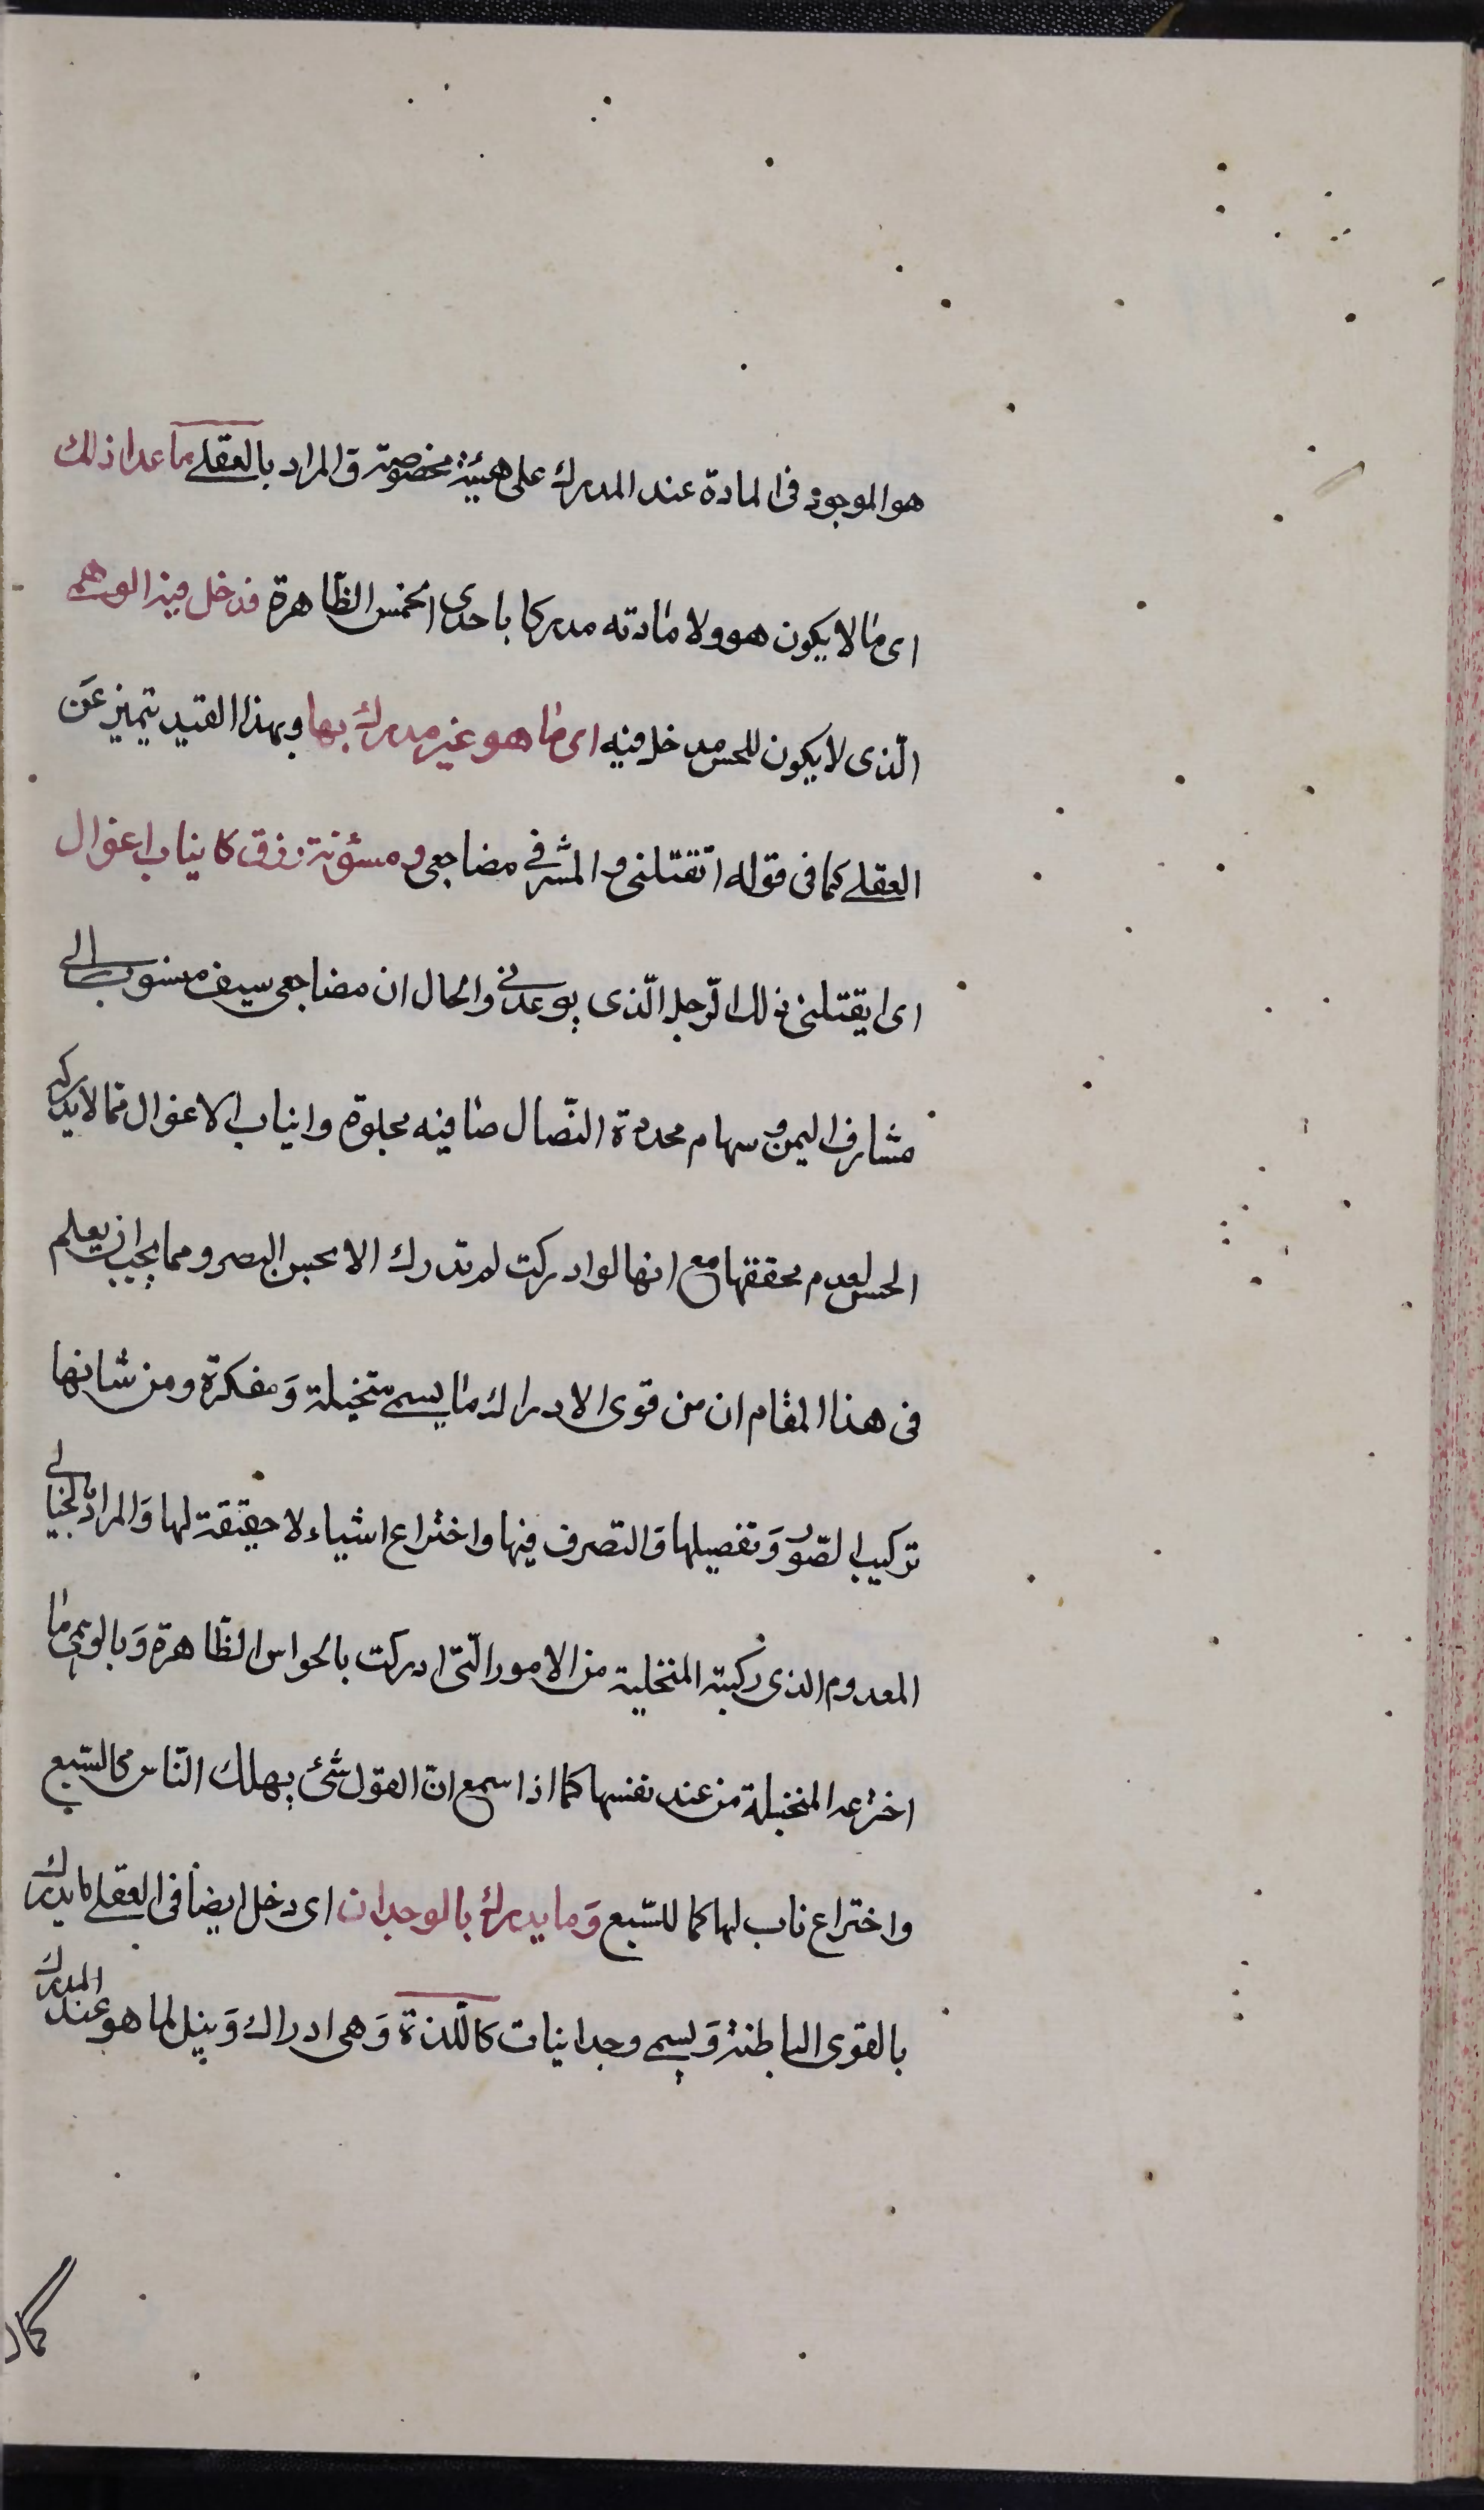 هو الموجود فى المادة عند المدرك على هيئة مخصوصة و المراد بالعقلے ما عدا ذلك
اى ما لا يكون هو ولا مادته مدركا باحدى الخمس الظاهرة فدخل فيه الوهمى
الّذى لا يكون للحس مدخل فيه اى ما هو غير مدرك بها وبهذا القيد يتميز عَن
العقلے كما فى قوله اتقتلنى و المشرفى مضاجعى و مسنونة زرق كانياب اغوال
اى ايقتلنى ذلك الرّجل الّذى يوعدنى والحال ان مضاجعى سيف منسوب الى
مشارف اليمن و سهام محددة النّصال صافيه مجلوة وانياب الاغوال مما لا يدركه
الحس لعدم تحققها مع انها لو ادركت لم تدرك الا بحس البصر ومما يجب ان يعلم
فى هذا المقام ان من قوى الادراك ما يسمى متخيلة وَ مفكرة ومن شانها
تركيب الصّور وَ تفصيلها وَ التصرف فيها واختراع اشياء لا حقيقة لها وَ المراد بالخيالى
المعدوم الذى ركبته المتخيلة من الامور الّتى ادركت بالحواس الظّاهرة وَ بالوهمى ما
اخترعه المتخيلة من عند نفسها كما اذا سمع ان الغول شئ يهلك النّاس كالسّبع
واختراع ناب لها كما للسّبع وَ ما يدرك بالوجدان اى دخل ايضا فى العقلے ما يدرك
بالقوى الباطنة وَ يسمى وجدانيات كاللّذة وَ هى ادراك وَ نيل لما هو عند المدرك
كمال